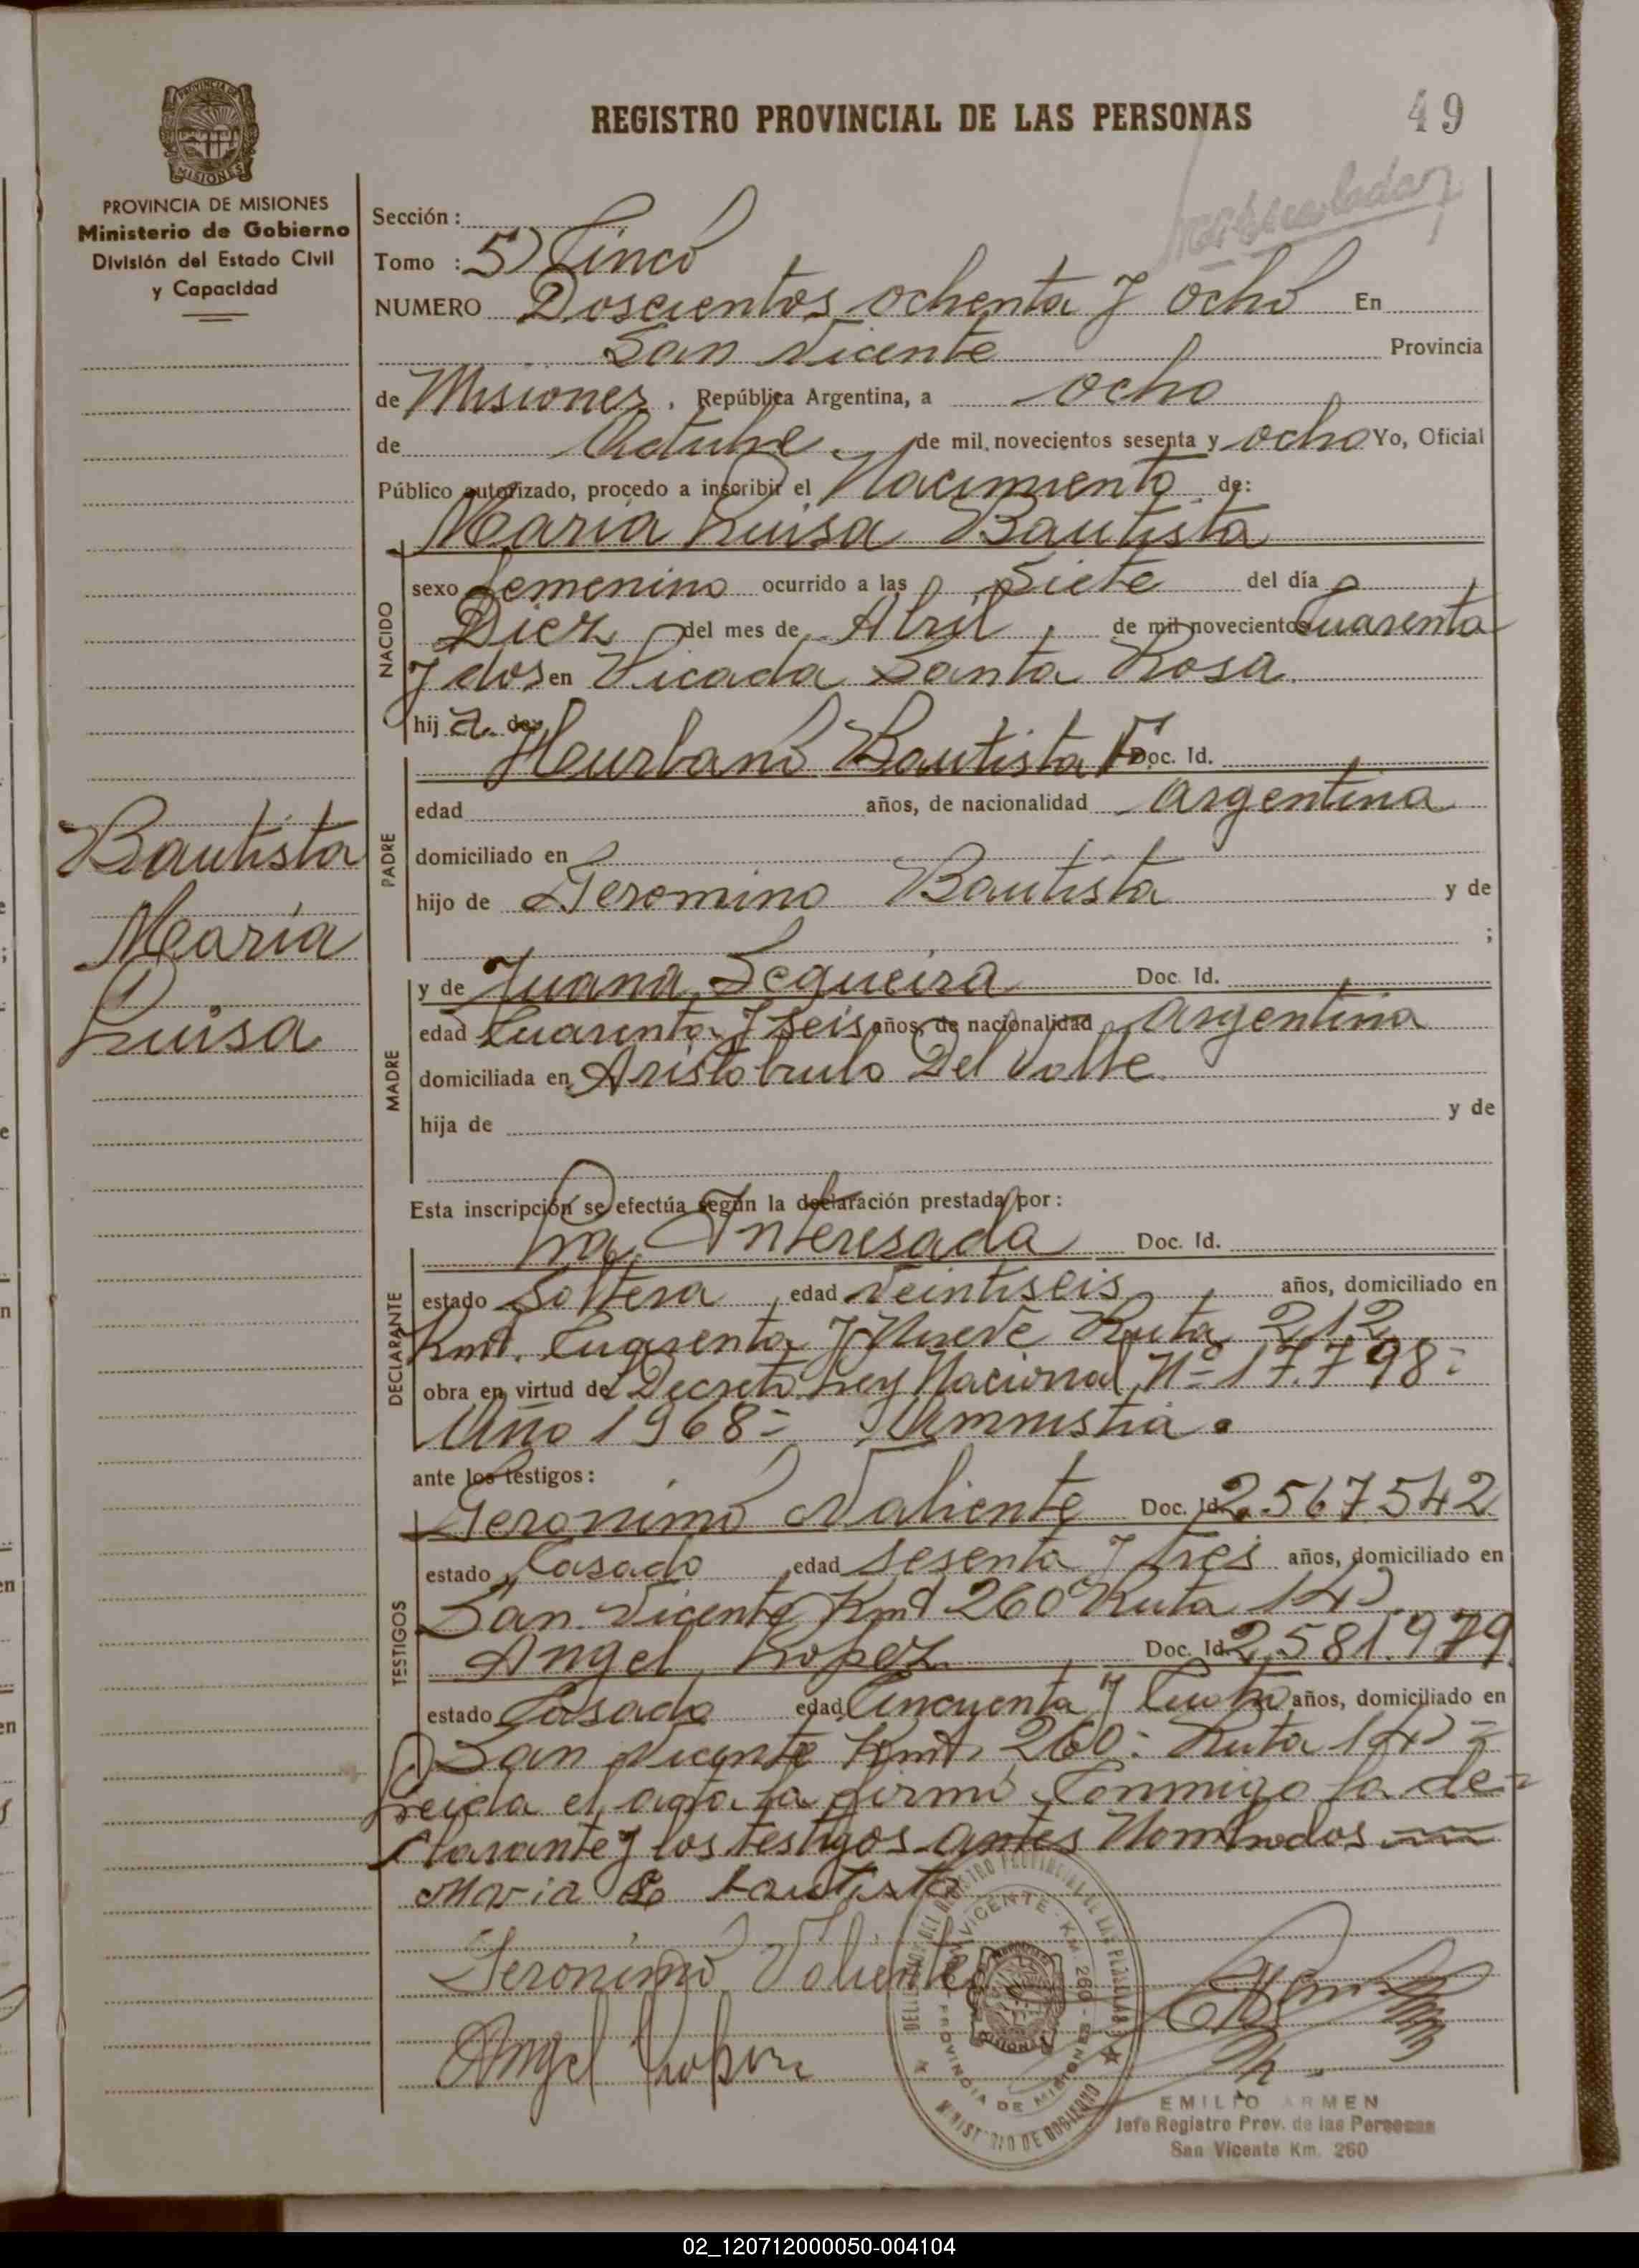 REGISTRO PROVINCIAL DE LAS PERSONAS
49
PROVINCIA DE MISIONES
Ministerio de Gobierno
División del Estado Civil
y Capacidad
Bautista
María
Luisa
Sección :
Tomo : 5) Cinco
NUMERO Doscientos ochenta y ocho En
San Vicente Provincia
de Misiones. República Argentina, a ocho
de Octubre de mil novecientos sesenta y ocho Yo, Oficial
Público autorizado, procedo a inscribir el Nacimiento de:
María Luisa Bautista
NACIDO
sexo femenino ocurrido a las siete del día
Diez del mes de Abril, de mil novecientos Cuarenta
y dos en Picada Santa Rosa.
hij a. de:
PADRE
Heurbano Bautista F. Doc. Id.
edad años, de nacionalidad Argentina
domiciliado en
hijo de Geromino Bautista y de
;
MADRE
y de Juana Sequeira Doc. Id.
edad Cuarenta y seis años, de nacionalidad Argentina
domiciliada en Aristobulo Del Valle
hija de y de
Esta inscripción se efectúa según la declaración prestada por :
DECLARANTE
La Interesada Doc. Id.
estado Soltera edad Veintiseis años, domiciliado en
Kmt. Cuarenta y Nueve Ruta 212
obra en virtud del Decreto Ley Nacional Nº 17.798=
Año 1968= Amnistia.
ante los testigos :
TESTIGOS
Geronimo Valiente Doc. Id. 2.567.542
estado Casado edad sesenta y tres años, domiciliado en
San Vicente Kmt 260 Ruta 14)
Angel Lopez Doc. Id. 2.581.979.
estado Casado edad Cincuenta y Cuatro años, domiciliado en
San Vicente Kmt. 260= Ruta 14)=
Leida el acta la firmó Conmigo la de=
clarante y los testigos antes Nombrados
Maria L Bautista
Geronimo Valiente
Angel
SAN VICENTE - KM 260 - PROVINCIA DE MISIONES
MINISTERIO DE GOBIERNO
EMILIO ARMEN
Jefe Registro Prov. de las Personas
San Vicente Km. 260
02_120712000050-004104